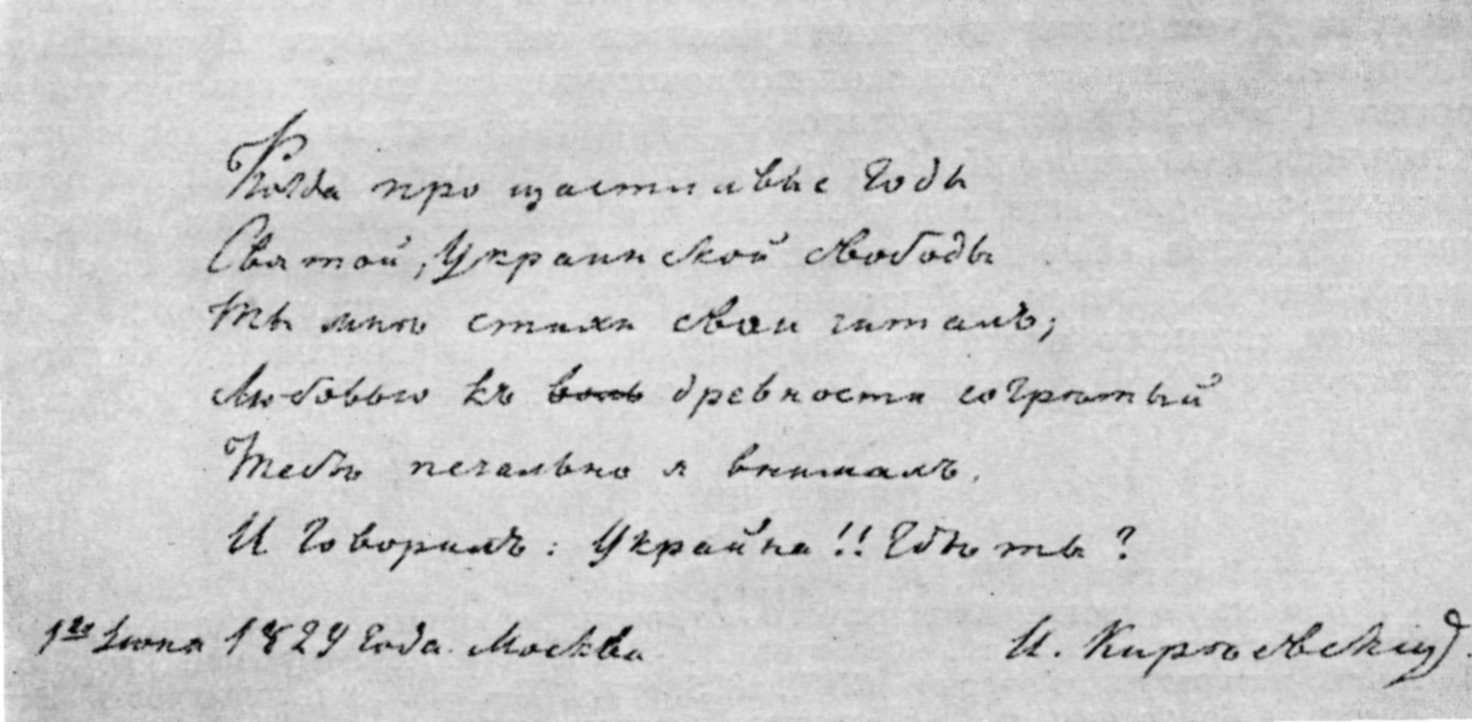 Когда про щастливые годы
Святой, Украинской свободы
Ты мнѣ стихи свои читалъ;
Любовью къ воль древности согрѣтый
Тебѣ печально я внималъ.
И говорилъ: Украйна!! Гдѣ ты?
1го Іюня 1829 года. Москва
И. Кирѣевскій.